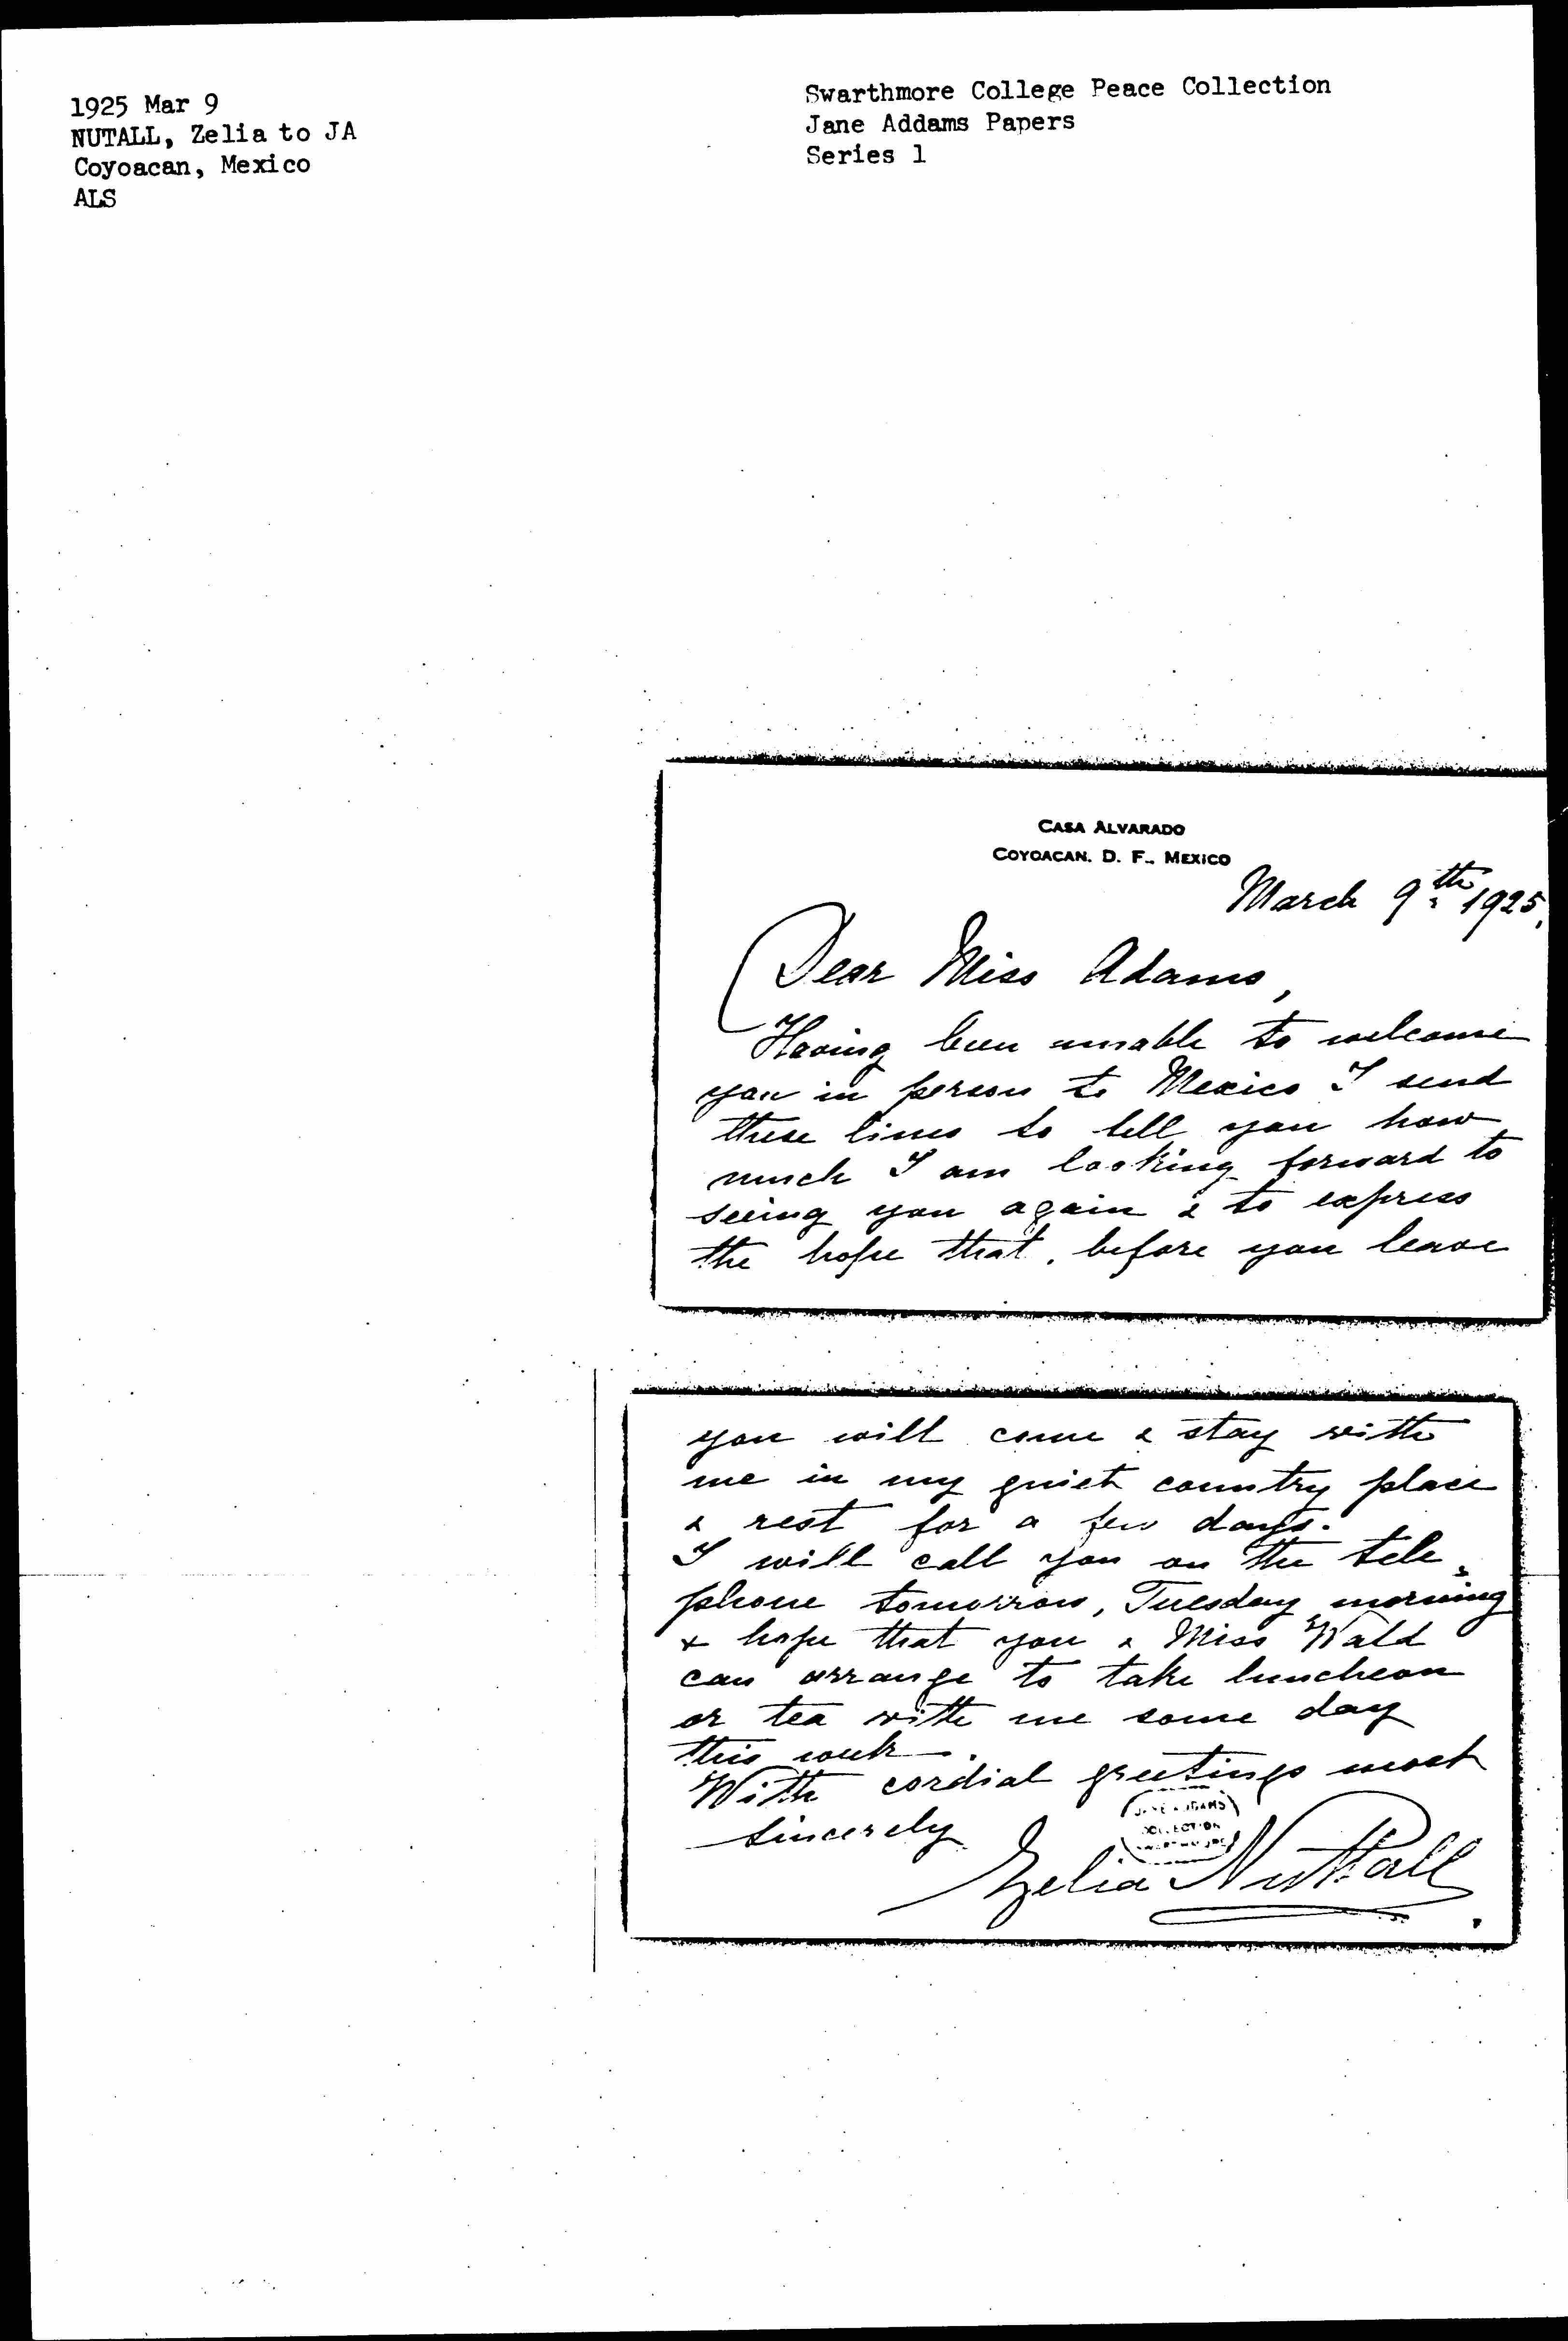 1925 Mar 9
NUTALL, Zelia to JA
Coyoacan, Mexico
ALS
Swarthmore College Peace Collection
Jane Addams Papers
Series 1
CASA ALVARADO
COYOACAN. D. F., MEXICO
March 9th 1925,
Dear Miss Adams,
Having been unable to welcome
you in person to Mexico I send
these lines to tell you how
much I am looking forward to
seeing you again & to express
the hope that, before you leave
you will come & stay with
me in my quiet country place
& rest for a few days.
I will call you on the tele-
phone tomorrow, Tuesday morning
& hope that you & Miss Wald
can arrange to take luncheon
or tea with me some day
this week.
With cordial greetings most
sincerely
JANE ADDAMS
COLLECTION
SWARTHMORE
Zelia Nuttall